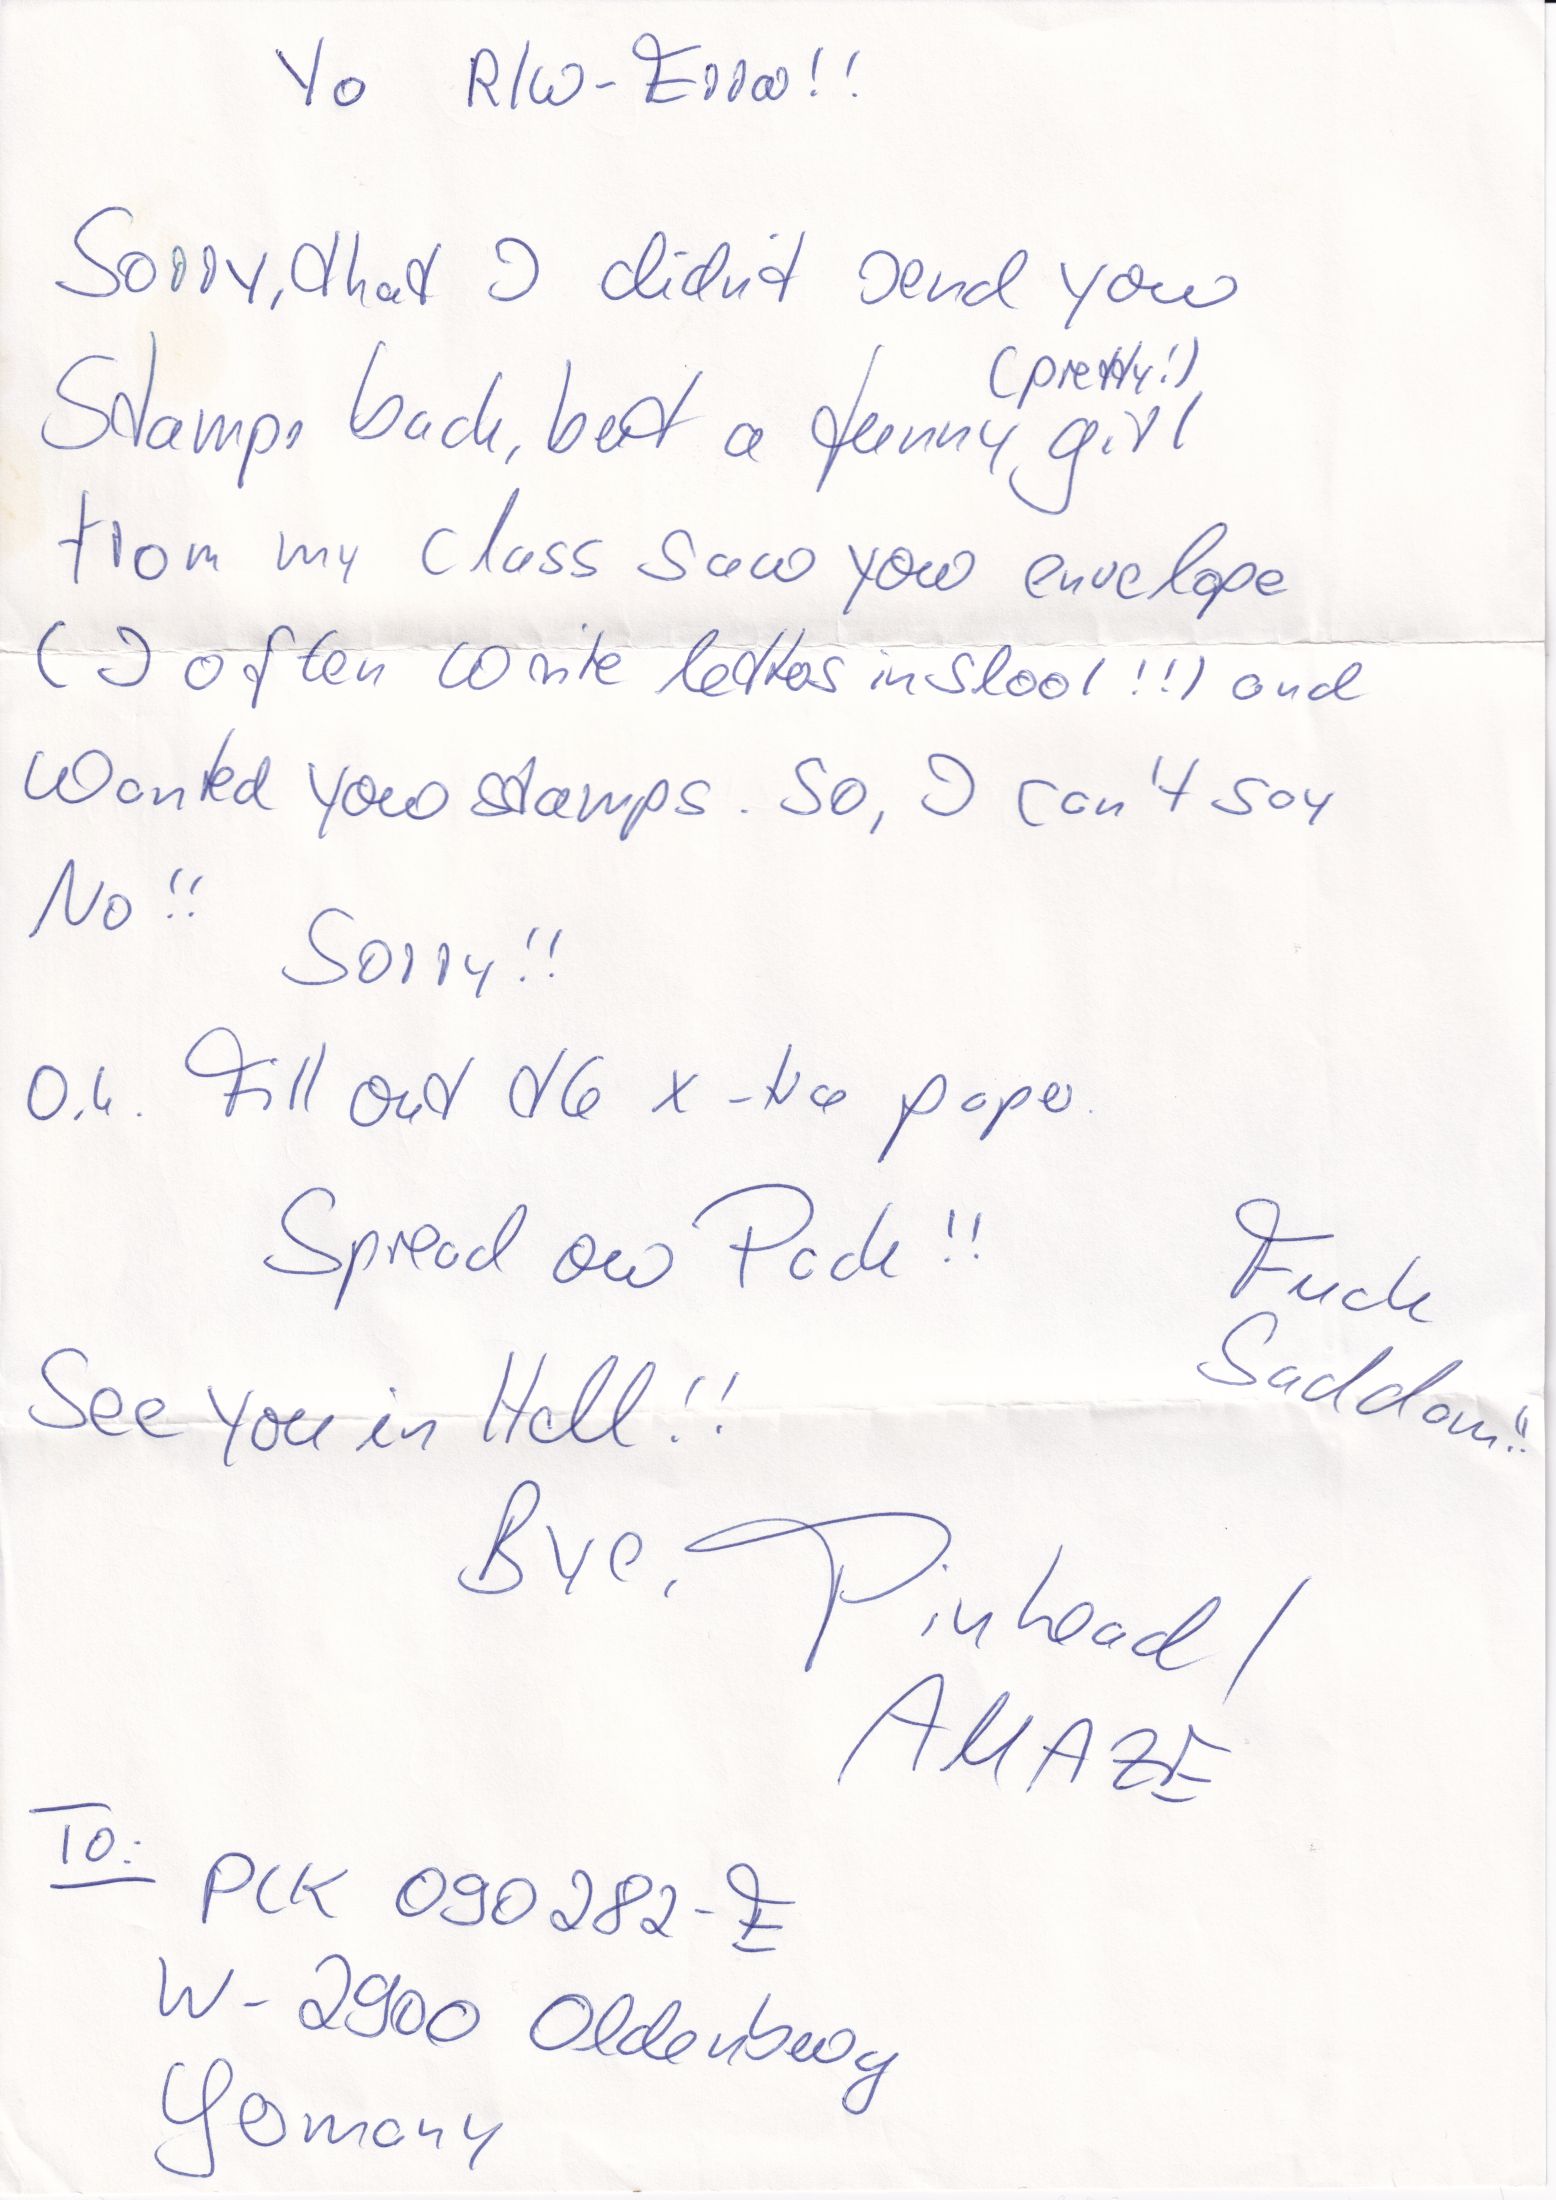 Yo R/W-Error!!
Sorry, that I didn't send your
Stamps back, but a funny (pretty!) girl
from my class saw your envelope
(I often write letters in slool!!) and
wanted your stamps. So, I can't say
No!!
Sorry!!
O.k. Fill out the x-tra paper.
Spread our Pack!!
Fuck
Saddam!!
See you in Hell!!
Bye, Pinhead/
AMAZE
To:
PLK 090282-E
W-2900 Oldenburg
Germany